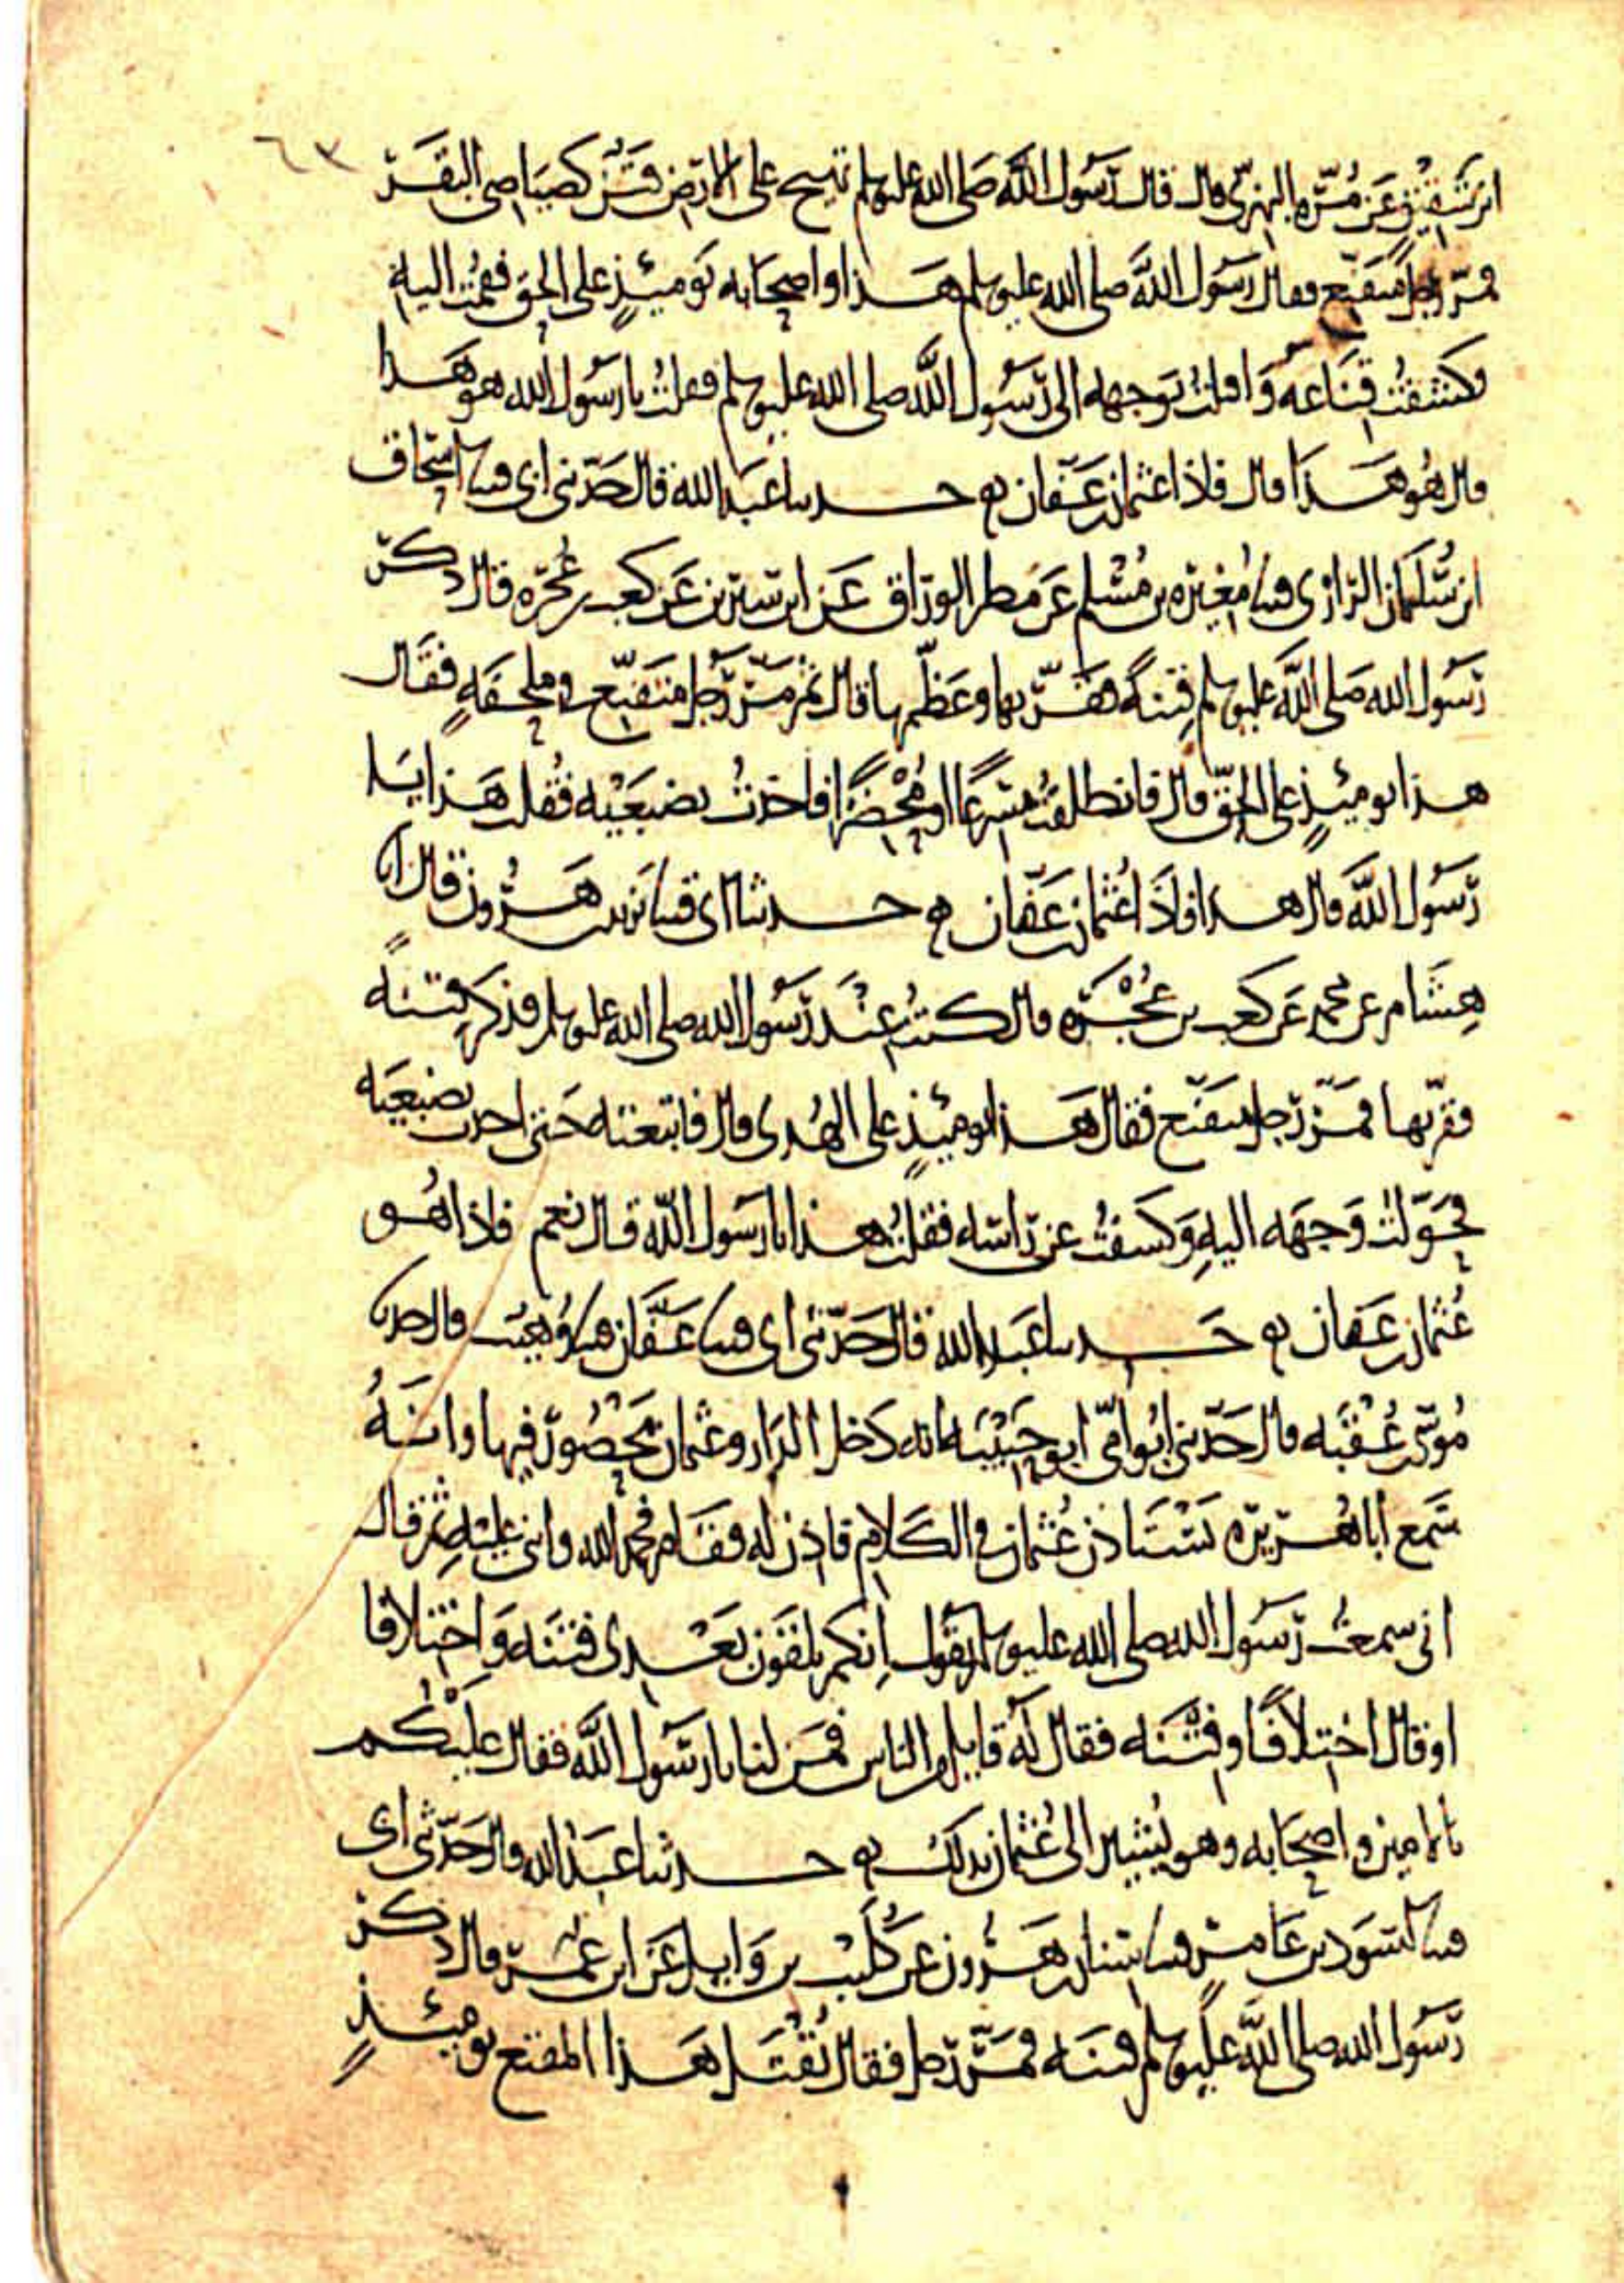 ٦٣
ابن شقيق عن مرة البهزي قال قال رسول الله صلى الله عليه وسلم تهيج على الارض فتن كصياصي البقر
فمر رجل متقنع فقال رسول الله صلى الله عليه وسلم هذا واصحابه يومئذٍ على الحق فقمت اليه
فكشفت قناعه وَاقبلتُ بوَجهه الى رسُول الله صلى الله عليه وسلم فقلتُ يا رسُول الله هو هَذا
قال هُو هَذا قال فاذا عثمان بن عفان حدثنا عبد الله قال حدثني ابي قثنا اسحاق
ابن سُليمان الرازي قثنا مُغيره بن مُسْلم عَن مَطر الوراق عَن ابن سيرين عَن كعب بن عُجره قال ذكر
رسُول الله صَلى الله عليه وسلم فِتنةً فقرّبها وعَظّمها قال ثم مَرّ رجل متقنّع في ملحفَهٍ فقال
هذا يومئذٍ على الحقّ قال فانطلقتُ مُسْرعًا او مُحْضرًا فاخذتُ بضبعَيْه فقُلت هَذا يا
رسُول الله قال هذا فاذا عُثمان بن عَفّان حدثنا ابي قثنا يزيد بن هَرُون قال انا
هِشام عن محمد عَن كعب بن عُجْرَه قال كنتُ عِنْدَ رسُول الله صلى الله عليه وسلم فذكر فتنةً
فقرّبها فمَرّ رجل متقنّع فقال هَذا يومئذٍ على الهُدى قال فاتبعته حَتى اخذت بضبعَيه
فحَوّلتُ وَجهَه اليهِ وَكشفتُ عن راسه فقلتُ هذا يا رسول الله قال نعم فاذا هُو
عُثمان بن عَفان حدثنا عَبد الله قال حَدّثني ابي قثنا عَفَّان قثنا وُهيب قال حدثنا
مُوسى بن عُقْبَه قال حَدّثني ابُو امّي ابو حَبيْبَه انه دَخل الدَار وعثمان مَحْصُور فيها وانهُ
سَمع أبا هُريرَه يَسْتَاذن عُثمان في الكَلام فاذن له فقَام فحمد الله واثنى عليْهِ ثم قال
اني سمعتُ رسُول الله صلى الله عليه وسلم يقول اِنكم تلقَون بَعْدي فتنه وَاختلافا
او قال اختِلافًا وفتْنَه فقال لَهُ قايل من الناس فمَن لنا يا رسُول الله فقال عليْكُم
بالامين واصحَابه وهو يُشير الى عُثمان بذلك حدثنا عَبْد الله قال حَدّثني ابي
قثنا اسود بن عَامر قثنا سنان بن هَرُون عن كُلَيْب بن وَايل عَن ابن عُمَر قال ذكر
رسُول الله صلى الله عليه وسلم فتنه فمَرّ رجل فقال يُقْتَل هَذا المقنع يومئذٍ